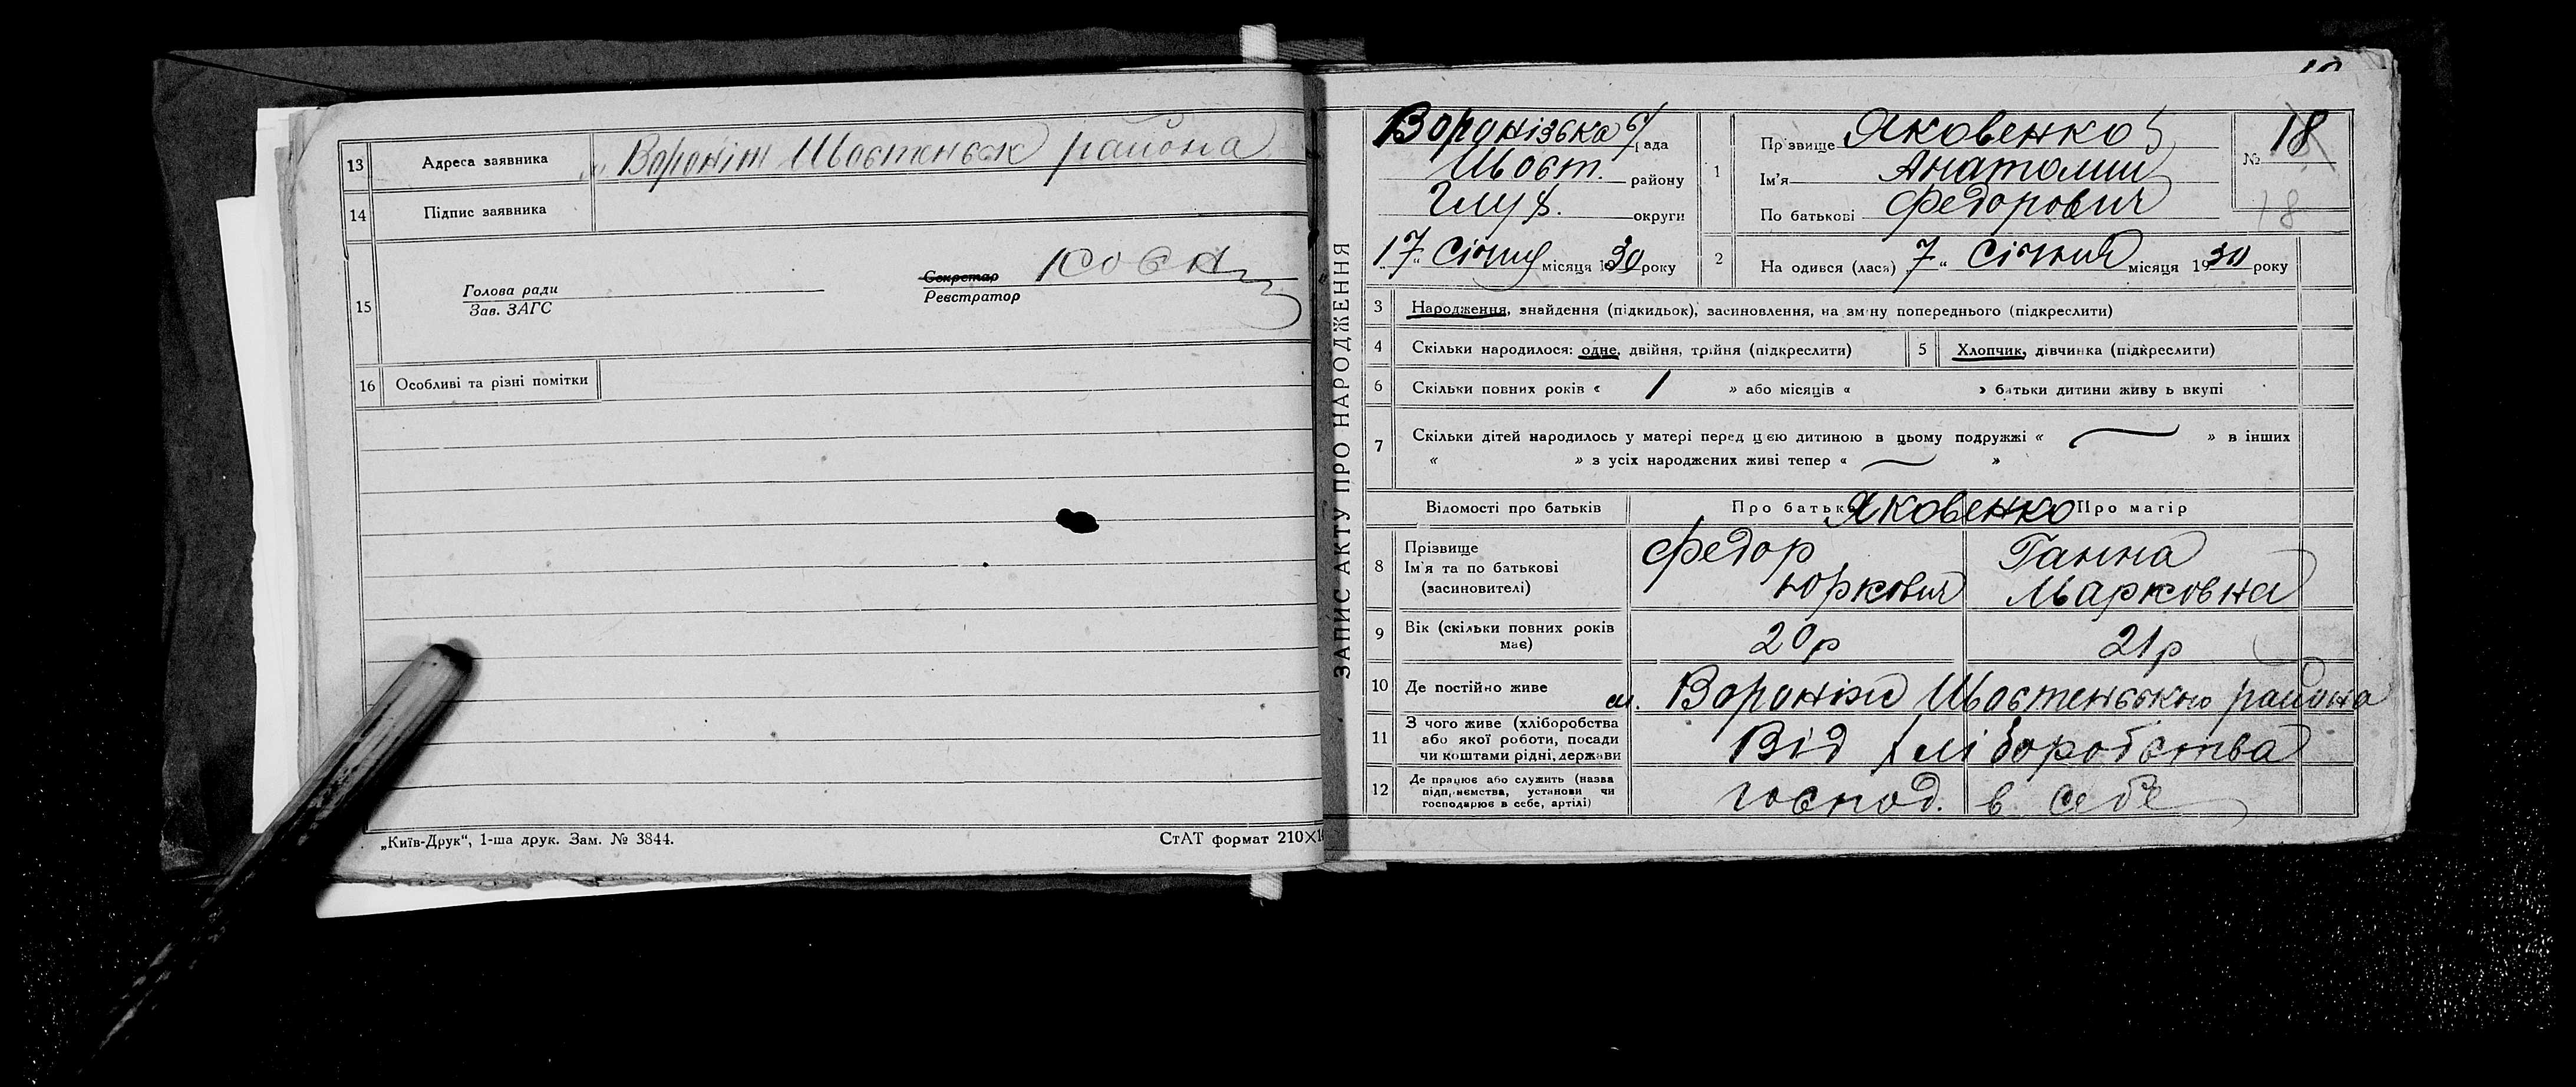 13 Адреса заявника Вороніж Шостенськ района
14 Підпис заявника
15 Голова ради
Зав. ЗАГС
Секретар
Реєстратор
16 Особливі та різні помітки
„Київ-Друк“, 1-ша друк. Зам. № 3844.
СтАТ формат 210×1
ЗАПИС АКТУ ПРО НАРОДЖЕННЯ
Воронізька с/рада
Шост. району
Глух. округи
„17“ Січня місяця 1930 року
1 Прізвище Яковенко
Ім'я Анатолий
По батькові Федорович
№ 18
18
2 Народився (лася) 7 “ Січня місяця 1930 року
3 Народження, знайдення (підкидьок), засиновлення, на зміну попереднього (підкреслити)
4 Скільки народилося: одне, двійня, трійня (підкреслити) 5 Хлопчик, дівчинка (підкреслити)
6 Скільки повних років « 1 » або місяців « » батьки дитини живуть вкупі
7 Скільки дітей народилось у матері перед цією дитиною в цьому подружжі « — » в інших
« » з усіх народжених живі тепер « — »
Відомості про батьків Про батька Яковенко Про матір
8 Прізвище
Ім'я та по батькові
(засиновителі)
Федор
Юркович
Ганна
Марковна
9 Вік (скільки повних років
має)
20 р
21 р
10 Де постійно живе м. Вороніж Шостенського района
11 З чого живе (хліборобства
або якої роботи, посади
чи коштами рідні, держави
Від хліборобства
12 Де працює або служить (назва
підприємства, установи чи
господарює в себе, артілі)
господ. в себе